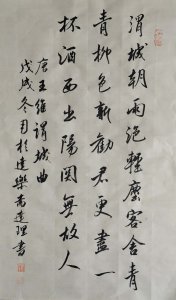 渭城朝雨浥輕塵客舍青
青柳色新勸君更盡一
杯酒西出陽關無故人
唐王維渭城曲
戊戌冬月於樂書